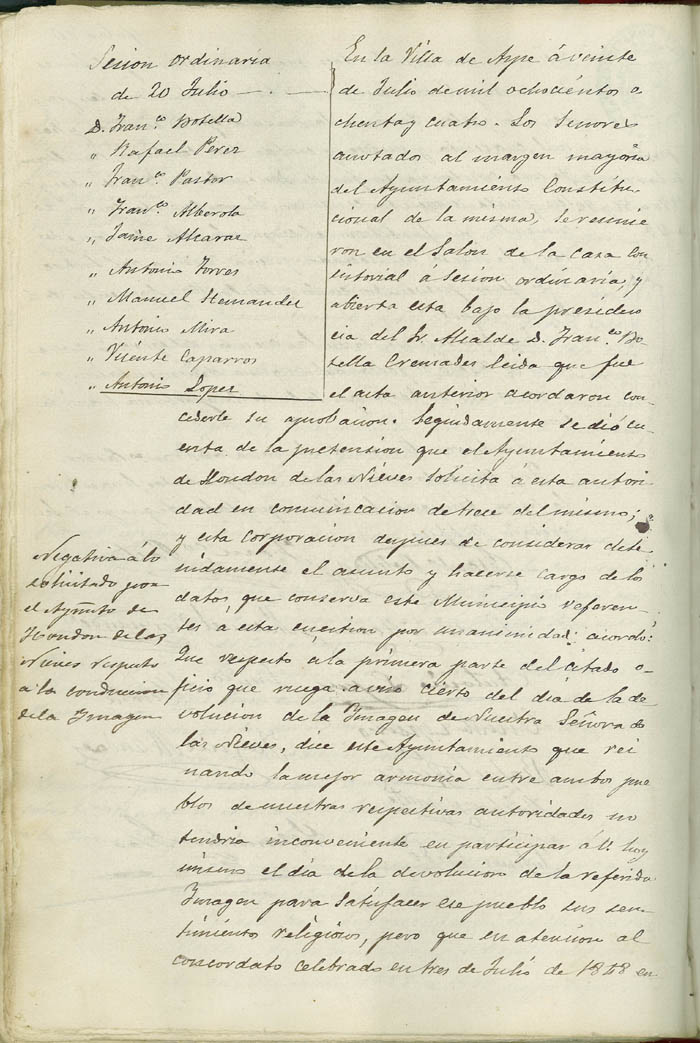 Sesion ordinaria
de 20 Julio
D. Fran.co Botella
" Rafael Perez
" Fran.co Pastor
" Fran.co Alberola
" Jaime Alcaraz
" Antonio Torres
" Manuel Hernandez
" Antonio Mira
" Vicente Caparros
" Antonio Lopez
En la Villa de Aspe á veinte
de Julio de mil ochocientos o
chenta y cuatro. Los Señores
anotados al margen mayoria
del Ayuntamiento Constitu-
cional de la misma, se reunie
ron en el Salon de la Casa Con
sistorial á sesion ordinaria, y
abierta esta bajo la presiden
cia del Sr. Alcalde D. Fran.co Bo-
tella Cremades leida que fue
el acta anterior acordaron con
cederle su aprobacion. Seguidamente se dió cu-
enta de la pretension que el Ayuntamiento
de Hondon de las Nieves solicita á esta autori
dad en comunicacion de trece del mismo;
y esta corporacion despues de considerar dete
nidamente el asunto y hacerse cargo de los
datos que conserva este Municipio referen-
tes á esta cuestion por unanimidad; acordó:
Que respecto á la primera parte del citado o-
ficio que ruega aviso cierto del dia de la de
volucion de la Imagen de Nuestra Señora de
las Nieves, dice este Ayuntamiento que rei
nando la mejor armonia entre ambos pue
blos de nuestras respectivas autoridades no
tendria inconveniente en participar á V. hoy
mismo el dia de la devolucion de la referida
Imagen para satisfacer ese pueblo sus sen-
timientos religiosos, pero que en atencion al
concordato celebrado en tres de Julio de 1848 en
Negativa á lo
solicitado por
el Ayunto de
Hondon de las
Nieves respecto
á la conduccion
de la Imagen